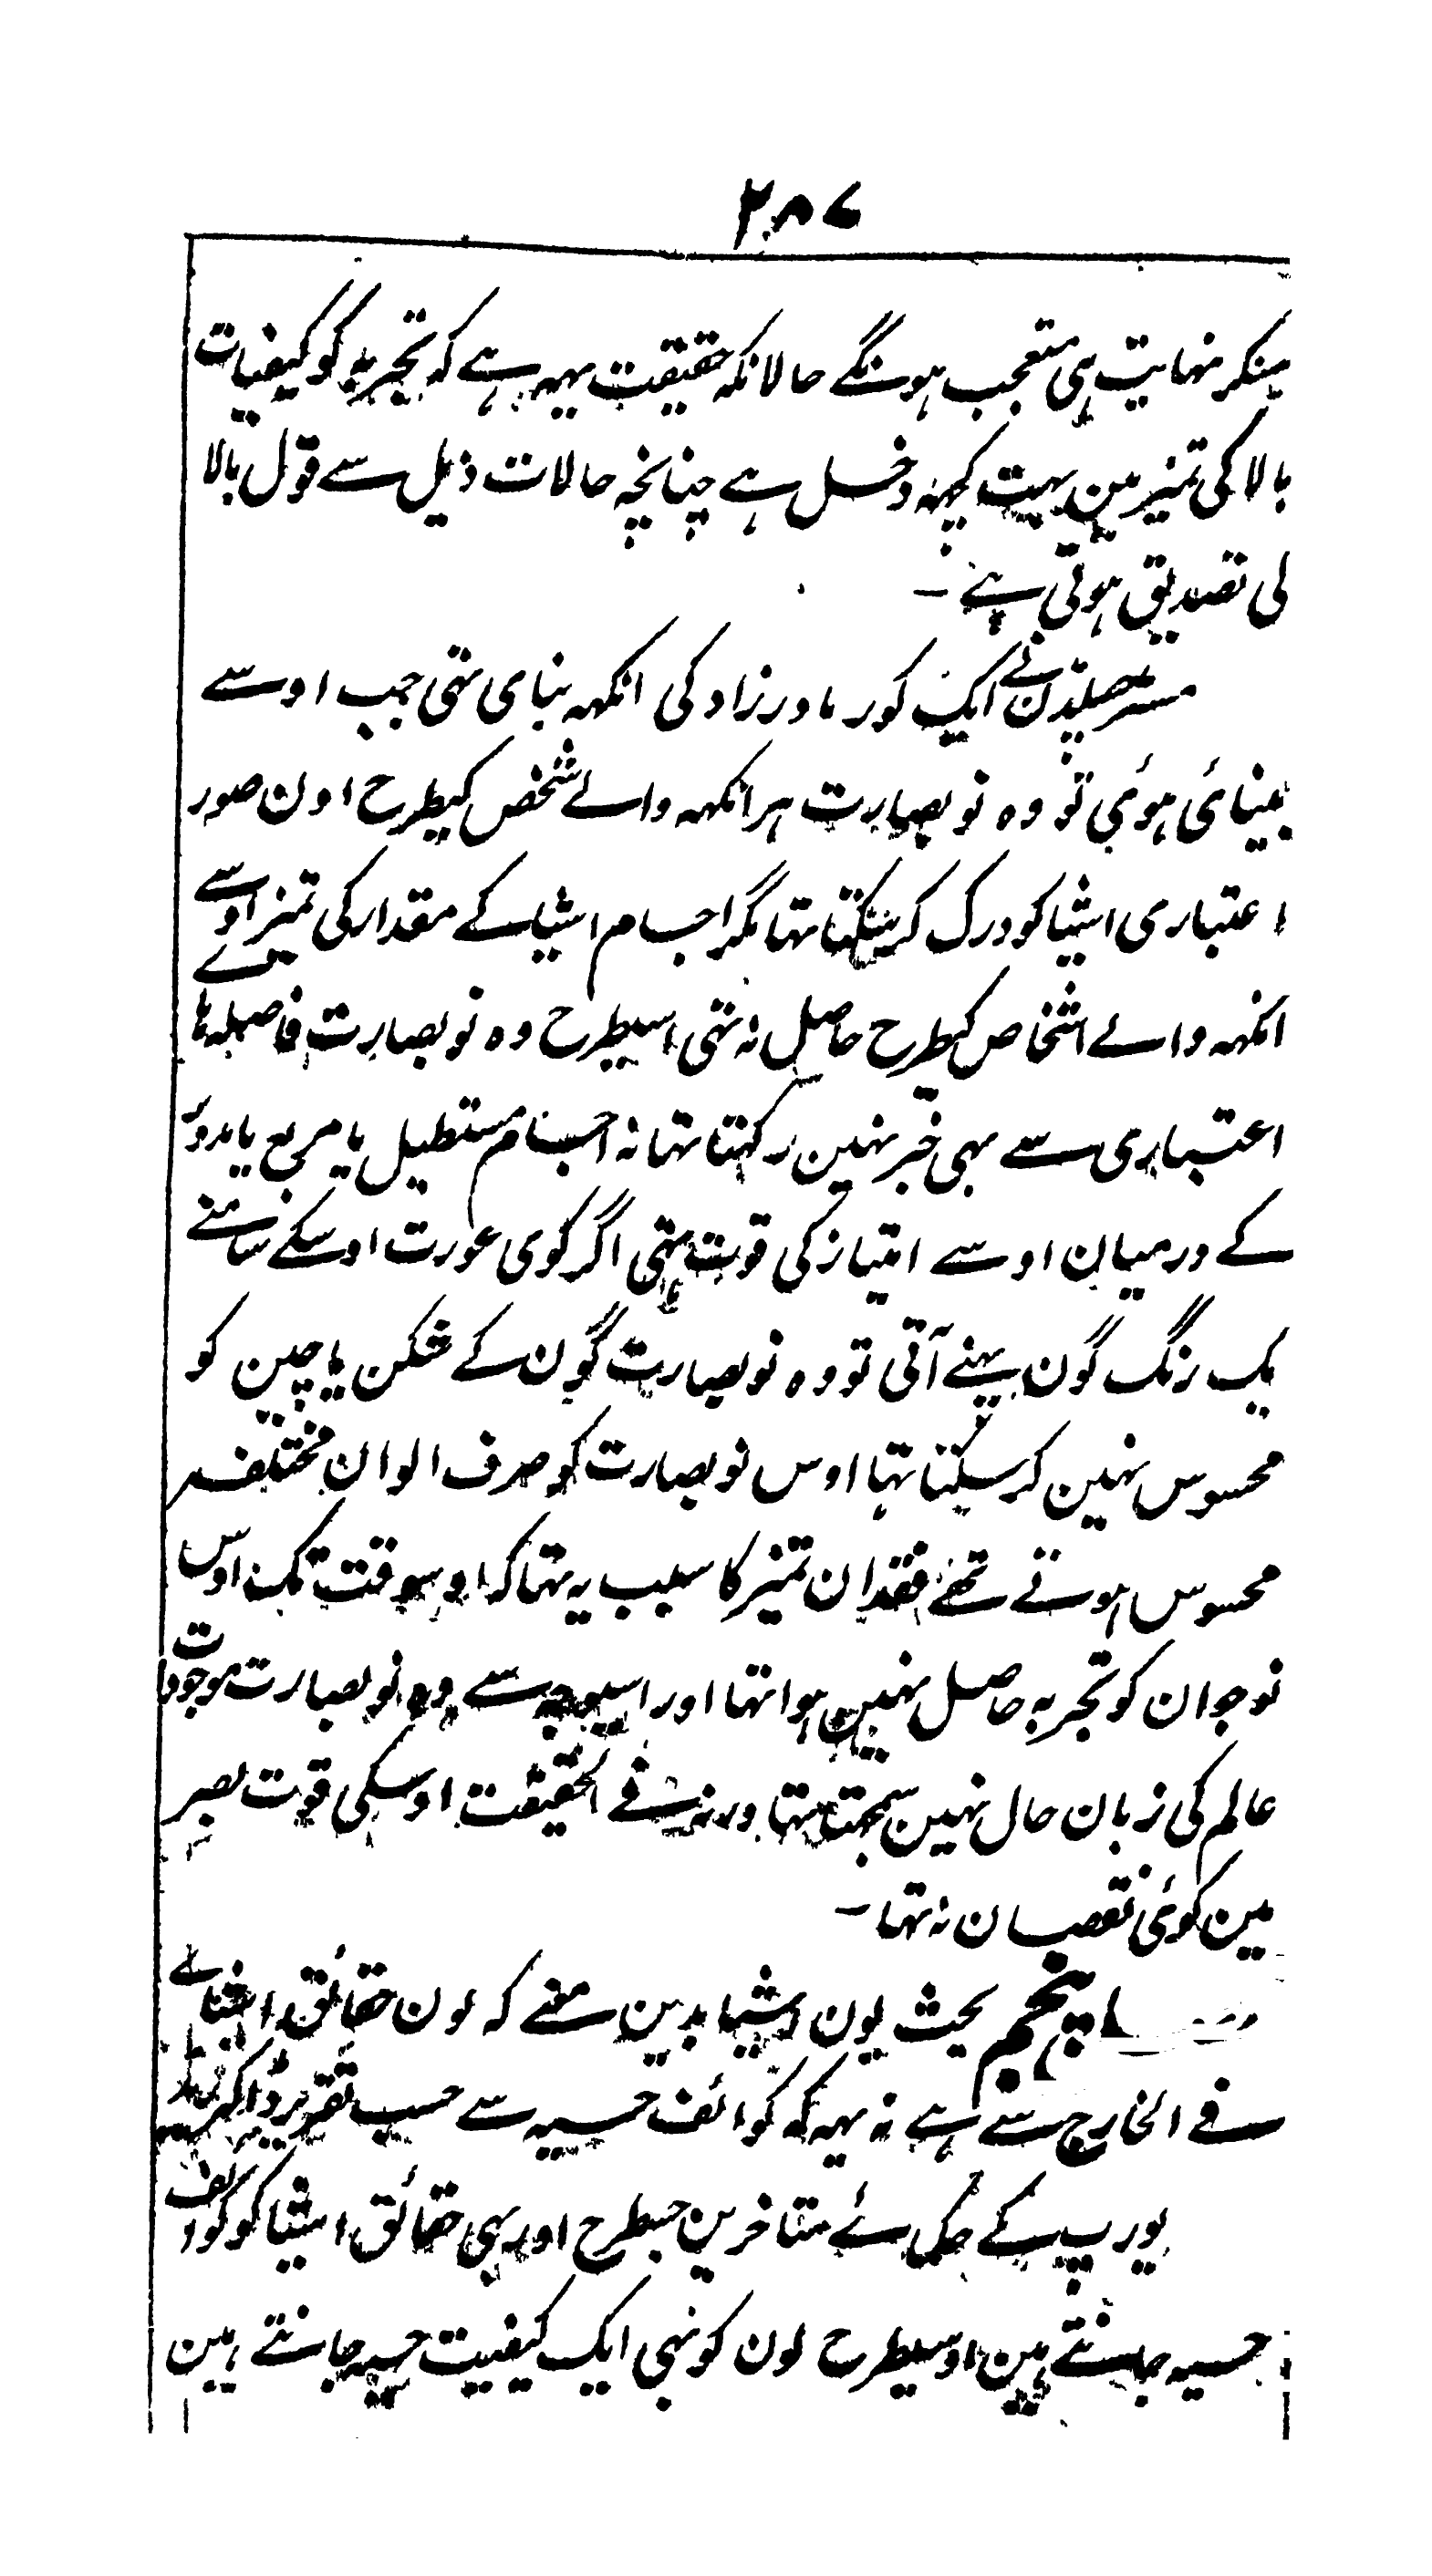 ۲۸۷
سنکر نہایت ہی متعجب ہونگے حالانکہ حقیقت یہہ ہے کہ تجربہ کو کیفیات
بالا کی تمیز مین بہت کچہہ دخل ہے چنانچہ حالات ذیل سے قول بالا
کی تصدیق ہوتی ہے ۔
مسٹر چسلڈن نے ایک کور مادر زاد کی انکہہ بنای تہی جب اوسے
بینائی ہوئی تو وہ نو بصارت ہر انکہہ والے شخص کیطرح اون صور
اعتباری اشیا کو درک کر سکتا تہا مگر اجسام اشیا کے مقدار کی تمیز اوسے
انکہہ والے اشخاص کیطرح حاصل نہ تہی اسیطرح وہ نو بصارت فاصلہ ہا
اعتباری سے بہی خبر نہین رکہتا تہا نہ اجسام مستطیل یا مربع یا مدور
کے درمیان اوسے امتیاز کی قوت تہی اگر کوی عورت اوسکے سامنے
یک رنگ گون پہنے آتی تو وہ نو بصارت گون کے شکن یا چین کو
محسوس نہین کر سکتا تہا اوس نو بصارت کو صرف الوان مختلفہ
محسوس ہوتے تھے فقدان تمیز کا سبب یہ تہا کہ اوسوقت تک اوس
نوجوان کو تجربہ حاصل نہین ہوا تہا اور اسیوجہ سے وہ نو بصارت موجودات
عالم کی زبان حال نہین سمجہتا تہا ورنہ فے الحقیقت اوسکی قوت بصر
مین کوئی نقصان نہ تہا ۔
پنجم بحث لون اشیا بدین معنے کہ لون حقائق اشیاے
فے الخارج سے ہے نہ یہہ کہ کوائف حسیہ سے حسب تقریر ڈاکٹر
یورپ کے حکمائے متاخرین جسطرح اور بہی حقائق اشیا کو کوائف
حسیہ جانتے ہین اوسیطرح لون کو بہی ایک کیفیت حسیہ جانتے ہین